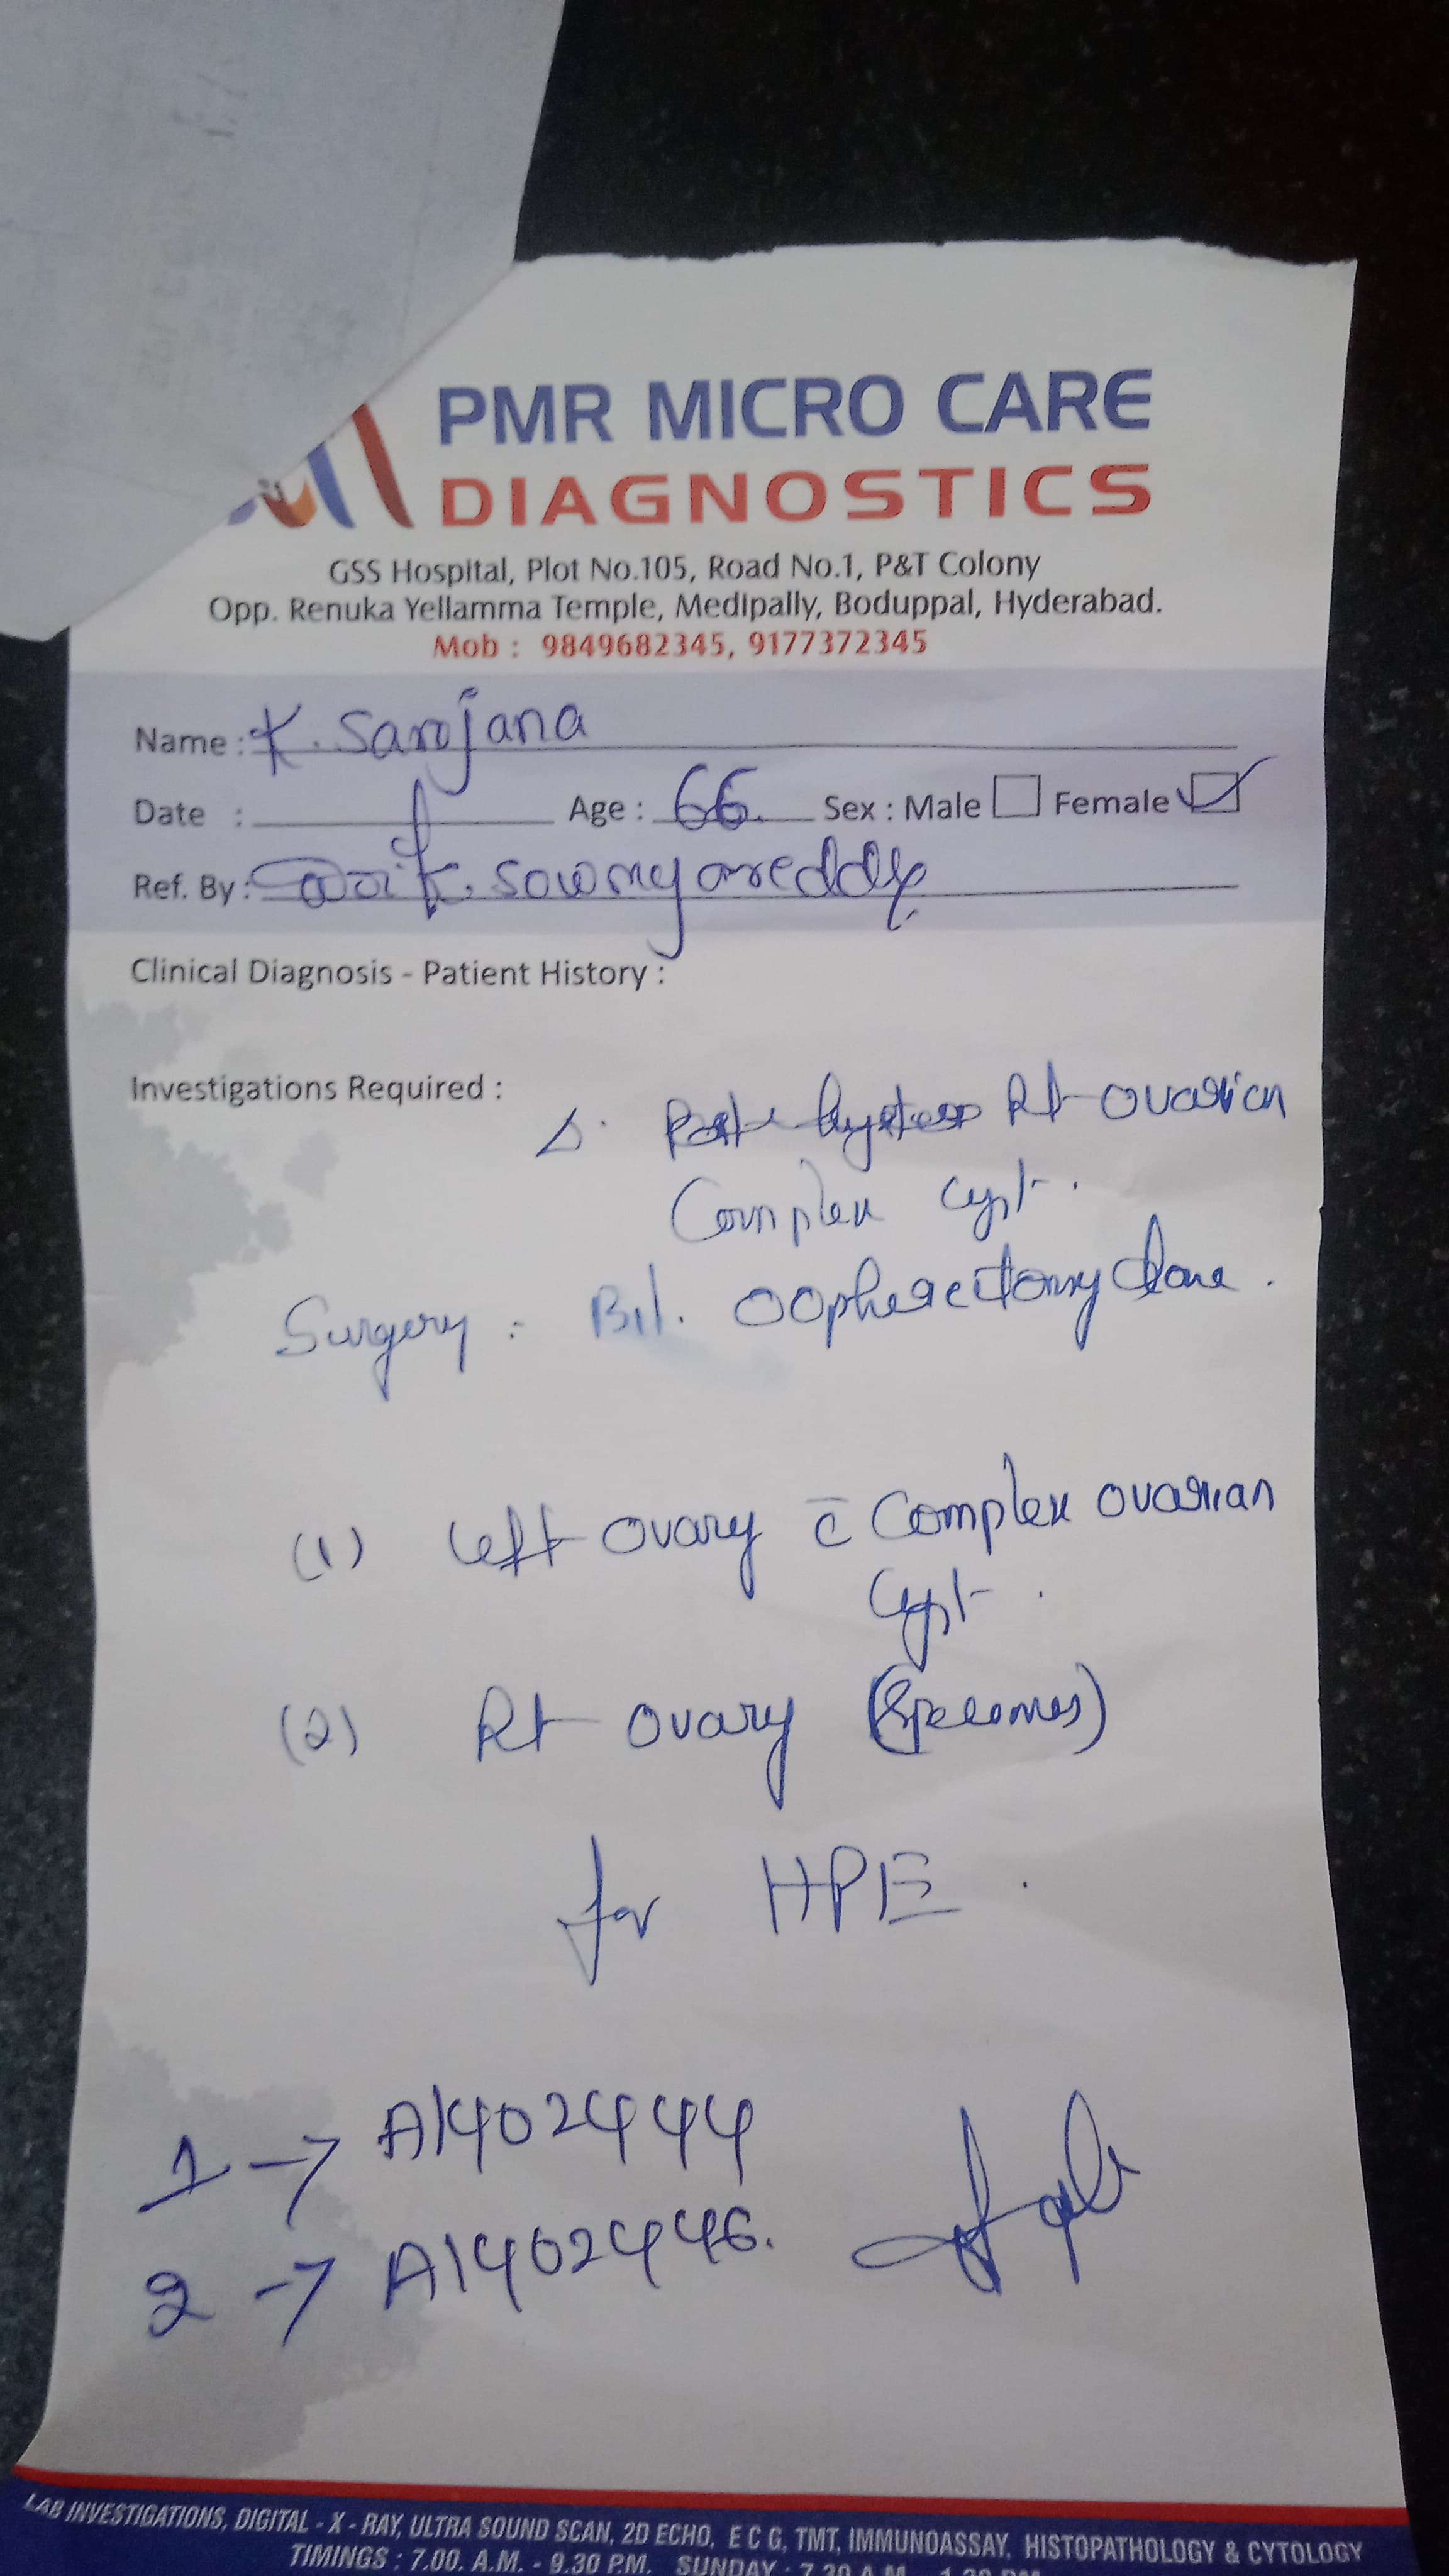 PMR MICRO CARE
DIAGNOSTICS
GSS Hospital, Plot No.105, Road No.1, P&T Colony
Opp. Renuka Yellamma Temple, Medipally, Boduppal, Hyderabad.
Mob : 9849682345, 9177372345
Name : K. Sarojana
Date : Age : 66. Sex : Male Female
Ref. By : K. sowmyareddy
Clinical Diagnosis - Patient History :
Investigations Required :
Δ. Rt ovarian
Complex cyst.
Surgery : B/l. oopherectomy done.
(1) left ovary c̄ Complex ovarian
Cyst.
(2) Rt ovary
for HPE.
1 → A1402444
2 → A1402446.
LAB INVESTIGATIONS, DIGITAL - X - RAY, ULTRA SOUND SCAN, 2D ECHO, E C G, TMT, IMMUNOASSAY, HISTOPATHOLOGY & CYTOLOGY
TIMINGS : 7.00. A.M. - 9.30 P.M. SUNDAY : 7.30 A.M.